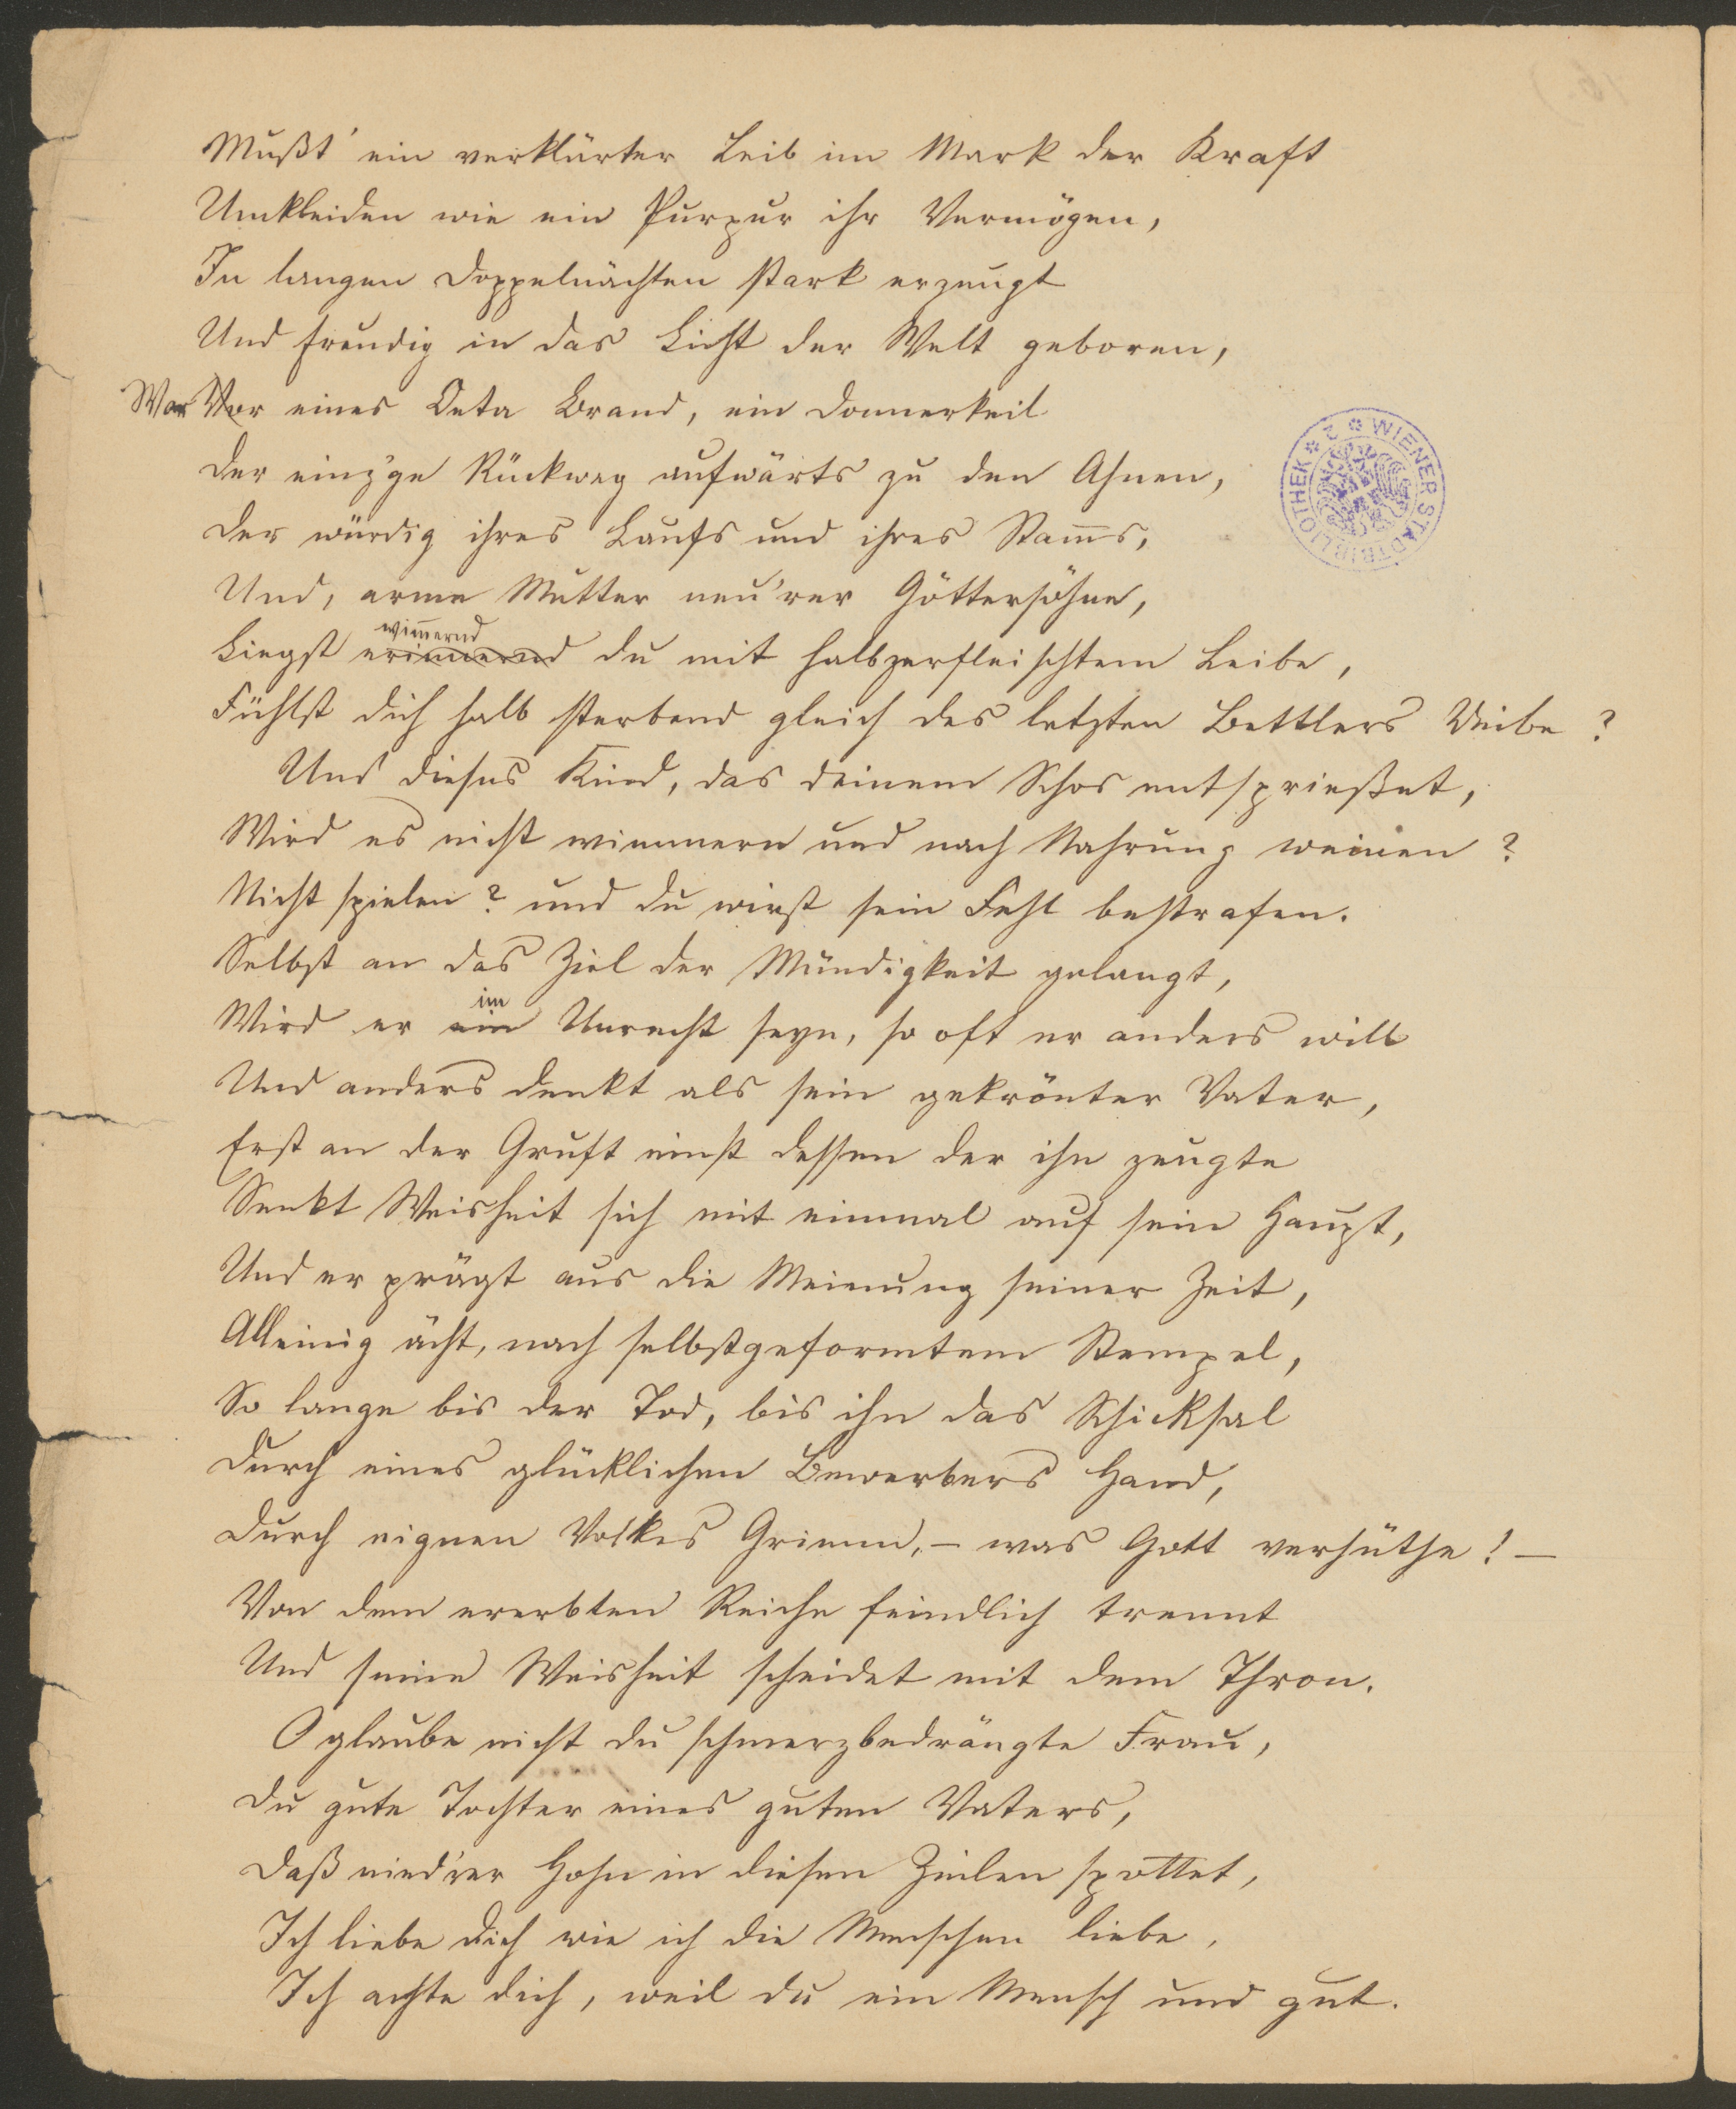 Mußt' ein verklärter Leib im Mark der Kraft
Umkleiden wie ein Purpur ihr Vermögen,
In langen Doppelnächten stark erzeugt
Und freudig in das Licht der Welt geboren,
War Vor eines Oeta Brand, ein Donnerkeil
Der einz'ge Rückweg aufwärts zu den Ahnen,
Der würdig ihres Laufs und ihres Stam̅s,
Und, arme Mutter neu'rer Göttersöhne,
wim̅ernd
Liegst erinnernd du mit halbzerfleischtem Leibe,
Fühlst dich halb sterbend gleich des letzten Bettlers Weibe?
Und dieses Kind, das deinem Schos entsprießet,
Wird es nicht wimmern und nach Nahrung weinen?
Nicht spielen? und du wirst sein Fehl bestrafen.
Selbst an das Ziel der Mündigkeit gelangt,
im
Wird er ein Unrecht seyn, so oft er anders will
Und anders denkt als sein gekrönter Vater,
Erst an der Gruft einst dessen der ihn zeugte
Senkt Weisheit sich mit einmal auf sein Haupt,
Und er prägt aus die Meinung seiner Zeit,
Alleinig ächt, nach selbstgeformtem Stempel,
So lange bis der Tod, bis ihn das Schicksal
Durch eines glücklichen Bewerbers Hand,
Durch eignen Volkes Grimm, – was Gott verhüthe! –
Von dem ererbten Reiche feindlich trennt
Und seine Weisheit scheidet mit dem Thron.
O glaube nicht du schmerzbedrängte Frau,
Du gute Tochter eines guten Vaters,
Daß nied'rer Hohn in diesen Zeilen spottet,
Ich liebe dich wie ich die Menschen liebe,
Ich achte dich, weil du ein Mensch und gut.
WIENER STADTBIBLIOTHEK